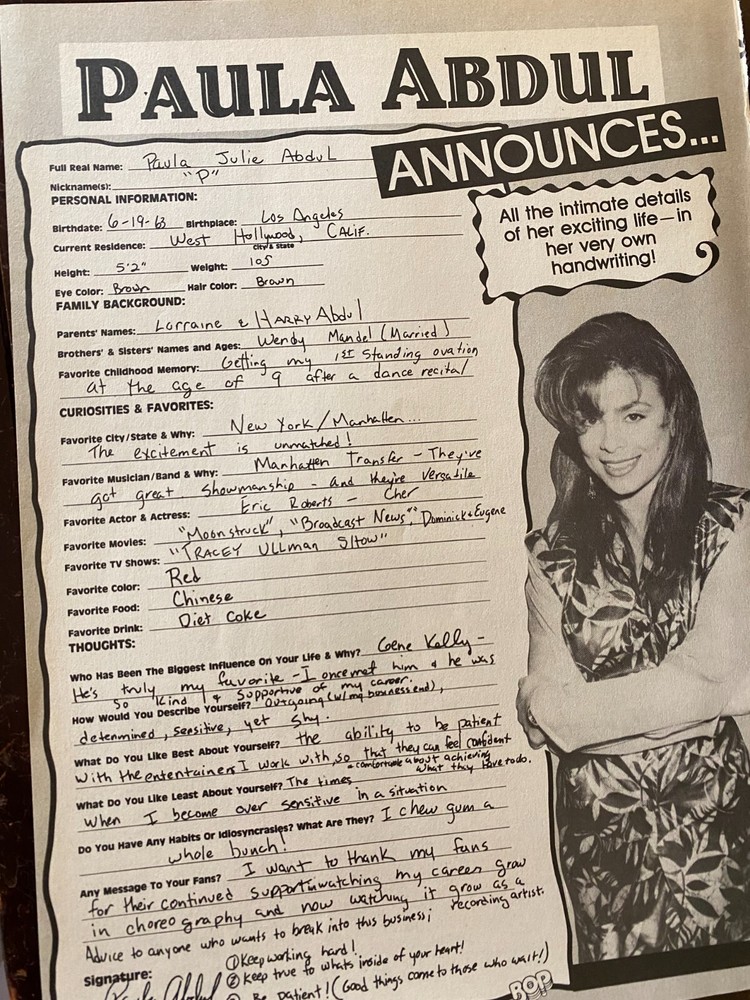 PAULA ABDUL
ANNOUNCES...
All the intimate details
of her exciting life—in
her very own
handwriting!
Full Real Name: Paula Julie Abdul
Nickname(s): "P"
PERSONAL INFORMATION:
Birthdate: 6-19-63 Birthplace: Los Angeles
Current Residence: West Hollywood, CALIF.
City & State
Height: 5'2" Weight: 105
Eye Color: Brown Hair Color: Brown
FAMILY BACKGROUND:
Parents' Names: Lorraine & HARRY Abdul
Brothers' & Sisters' Names and Ages: Wendy Mandel (Married)
Favorite Childhood Memory: Getting my 1st Standing ovation
at the age of 9 after a dance recital
CURIOSITIES & FAVORITES:
Favorite City/State & Why: New York/Manhatten...
The excitement is unmatched!
Favorite Musician/Band & Why: Manhatten Transfer - They've
got great showmanship - and they're versatile
Favorite Actor & Actress: Eric Roberts - Cher
Favorite Movies: "Moonstruck", "Broadcast News", Dominick & Eugene
Favorite TV Shows: "TRACEY Ullman SHow"
Favorite Color: Red
Favorite Food: Chinese
Favorite Drink: Diet Coke
THOUGHTS:
Who Has Been The Biggest Influence On Your Life & Why? Gene Kelly -
He's truly my favorite - I once met him & he was
so kind & supportive of my career.
How Would You Describe Yourself? Outgoing (w/my business end),
determined, sensitive, yet shy.
What Do You Like Best About Yourself? the ability to be patient
with the entertainers I work with, so that they can feel confident
& comfortable about achieving
what they have to do.
What Do You Like Least About Yourself? The times
when I become over sensitive in a situation
Do You Have Any Habits Or Idiosyncrasies? What Are They? I chew gum a
whole bunch!
Any Message To Your Fans? I want to thank my fans
for their continued support in watching my career grow
in choreography and now watching it grow as a
recording artist.
Advice to anyone who wants to break into this business;
① Keep working hard!
② Keep true to whats inside of your heart!
Be patient! (Good things come to those who wait!)
Signature: Paula Abdul
BOP